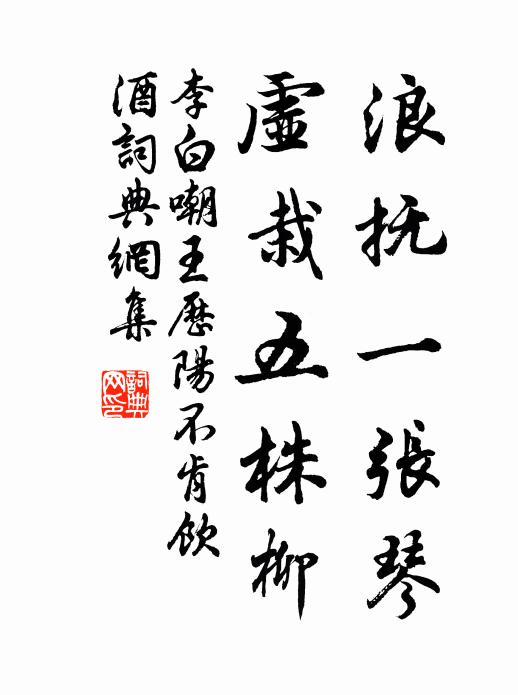 浪抚一張琴
虛栽五株柳
李白嘲王歷陽不肯飲
酒詞典網集
詞典网印